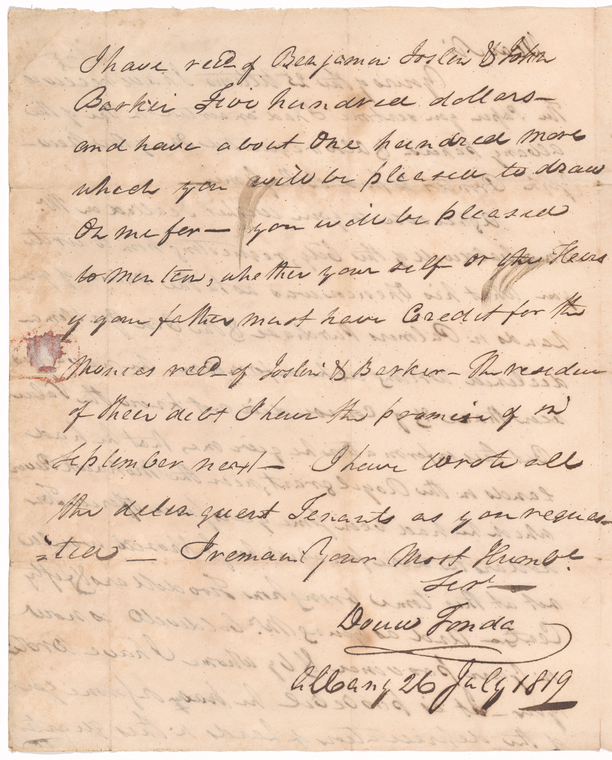 I have recd of Benjamin Joslin & John
Barker Five hundred dollars—
and have about One hundred more
which you will be pleased to draw
On me for— you will be pleased
to mention, whether your self or the Heirs
of your father must have Credit for the
Monies recd of Joslin & Barker— The residue
of their debt I have the promise of in
September next— I have wrote all
the delinquent Tenants as you reques-
=ted — I remain Your Most Humbe
Sert—
Douw Fonda
Albany 26 July 1819